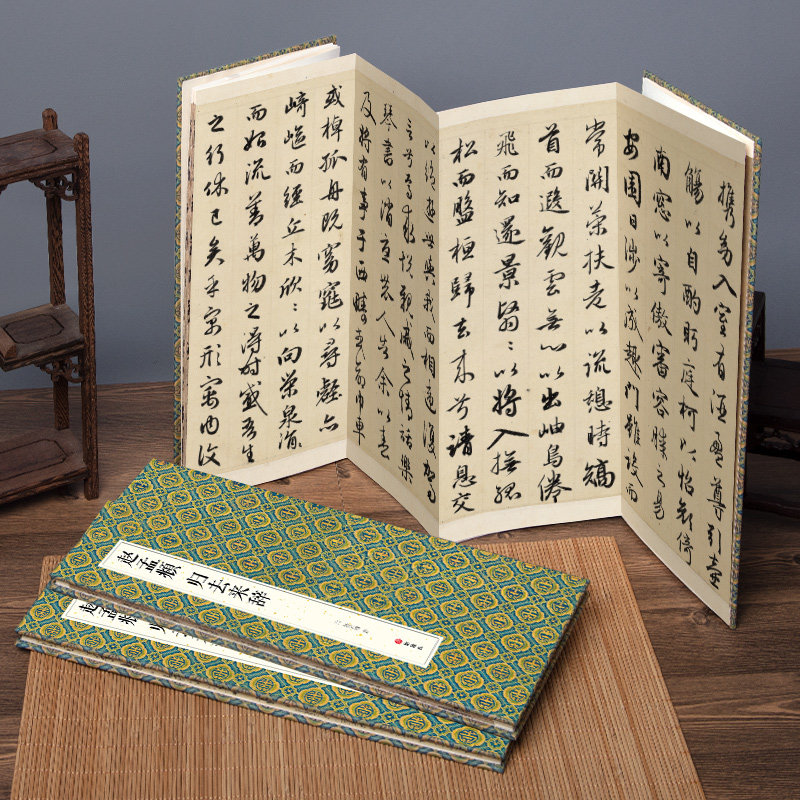 攜幼入室有酒盈尊引壺
觴以自酌眄庭柯以怡顔倚
南窓以寄傲審容膝之易
安園日涉以成趣門雖設而
常關策扶老以流憩時矯
首而遐觀雲無心以出岫鳥倦
飛而知還景翳〻以將入撫孤
松而盤桓歸去来兮請息交
以絶遊世與我而相遺復駕
言兮焉求悦親戚之情話樂
琴書以消憂農人告余以春
及將有事于西疇或命巾車
或棹孤舟既窈窕以尋壑亦
崎嶇而經丘木欣〻以向榮泉涓
而始流羨萬物之得時感吾生
之行休已矣乎寓形宇内復
赵孟頫 归去来辞
赵孟頫 归